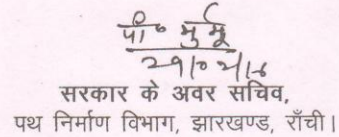 पी॰ मुर्मू
सरकार के अवर सचिव,
पथ निर्माण विभाग, झारखण्ड, राँची।